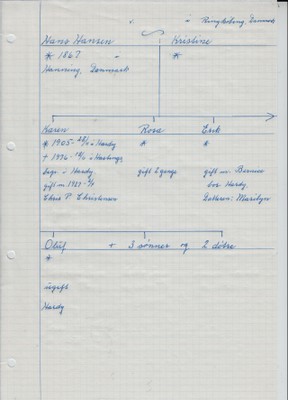 Ringkøbing, Danmark
Hans Hansen Kristine
* 1867 *
Hanning, Danmark
Karen Rosa Erik
* 1905 i Hardy * *
† 1976 i Hastings
i Hardy gift 2 gange gift m. Bernice
gift m. 1927 bor Hardy
Chris P. Christensen Datteren: Marilyn
Oluf + 3 sønner og 2 døtre
*
ugift
Hardy